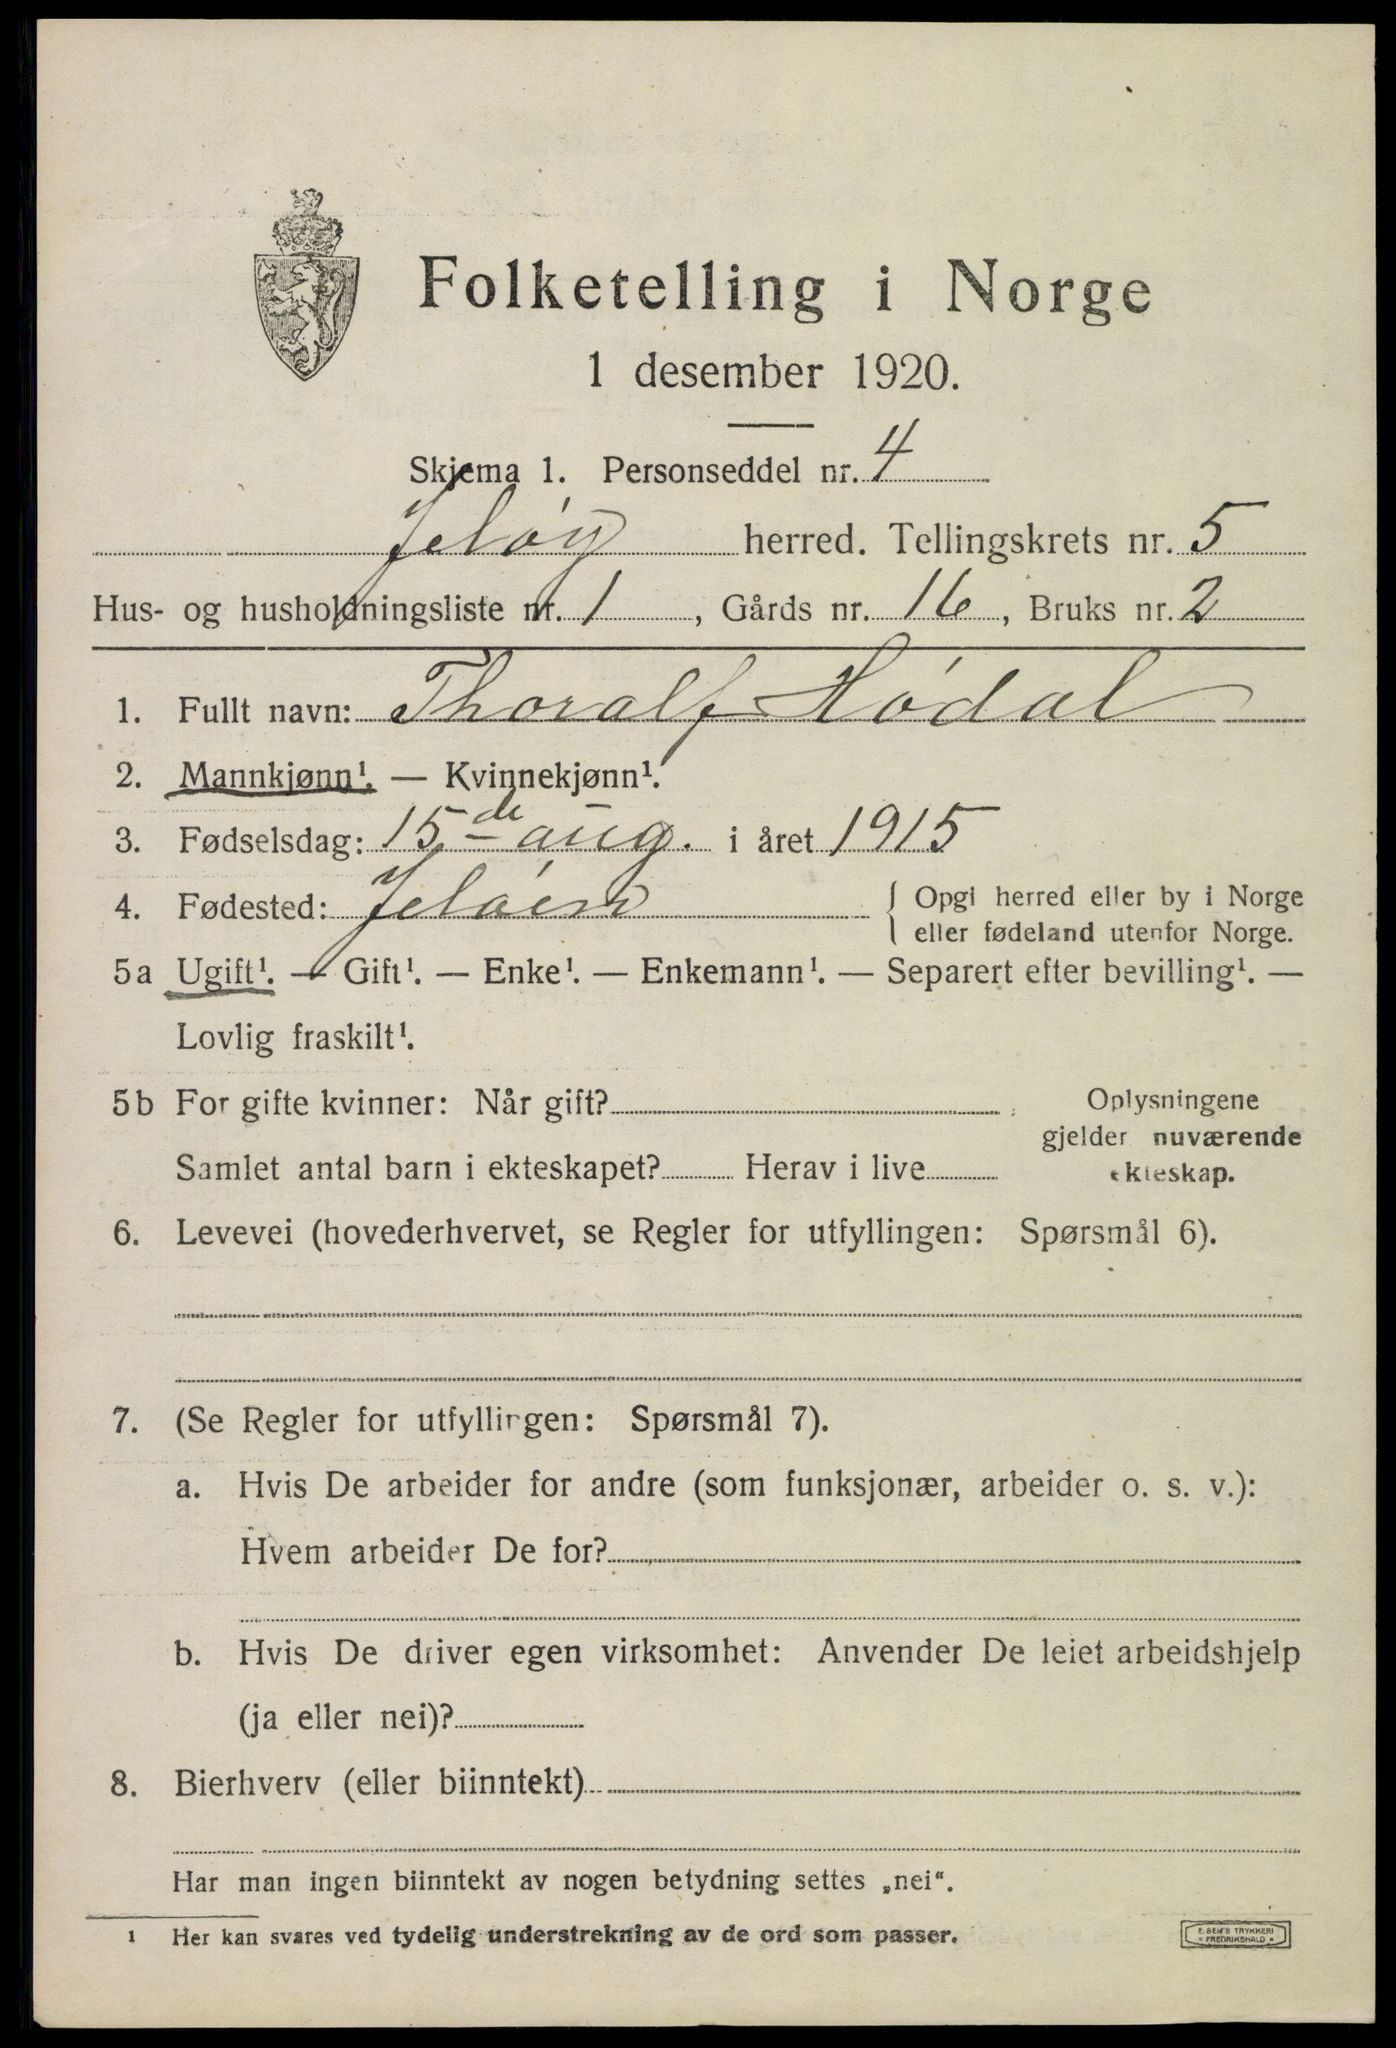 Folketelling i Norge
1 desember 1920.
Skjema 1. Personseddel nr. 4
Jeløy herred. Tellingskrets nr. 5
Hus- og husholdningsliste nr. 1, Gårds nr. 16, Bruks nr. 2
1. Fullt navn: Thoralf Hødal
2. Mannkjønn¹. — Kvinnekjønn¹.
3. Fødselsdag: 15de aug. i året 1915
4. Fødested: Jeløen { Opgi herred eller by i Norge
eller fødeland utenfor Norge.
5a Ugift¹. — Gift¹. — Enke¹. — Enkemann¹. — Separert efter bevilling¹. —
Lovlig fraskilt¹.
5b For gifte kvinner: Når gift?
Samlet antal barn i ekteskapet? Herav i live
Oplysningene
gjelder nuværende
ekteskap.
6. Levevei (hovederhvervet, se Regler for utfyllingen: Spørsmål 6).
7. (Se Regler for utfyllingen: Spørsmål 7).
a. Hvis De arbeider for andre (som funksjonær, arbeider o. s. v.):
Hvem arbeider De for?
b. Hvis De driver egen virksomhet: Anvender De leiet arbeidshjelp
(ja eller nei)?
8. Bierhverv (eller biinntekt)
Har man ingen biinntekt av nogen betydning settes „nei“.
¹ Her kan svares ved tydelig understrekning av de ord som passer.
E. SEM'S TRYKKERI
FREDRIKSHALD